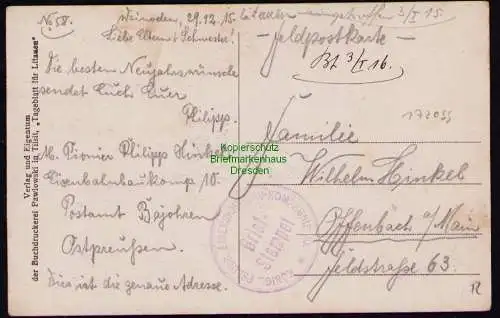 No 58.
29.12.15.
Liebe Eltern u. Schwester!
Die besten Neujahrswünsche
sendet Euch Euer
Philipp.
A. Pionier Philipp Hinkel
Eisenbahnbaukomp 10.
Postamt Bajohren
Ostpreußen.
Dies ist die genaue Adresse.
Verlag und Eigentum
der Buchdruckerei Pawlowski in Tilsit, „Tageblatt für Litauen"
3/I 15.
- Feldpostkarte -
Bt. 3/I 16.
172055
Familie
Wilhelm Hinkel
Offenbach a/Main
Feldstraße 63.
Brief-
Stempel
Kopierschutz
Briefmarkenhaus
Dresden